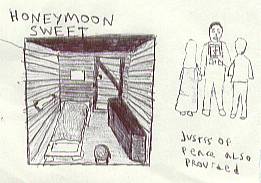 HONEYMOON
SWEET
Justis of
Peace also
provided